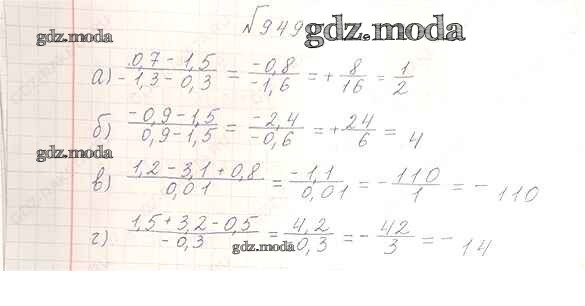 №949
gdz.moda
gdz.moda
а) (0,7 - 1,5)/(-1,3 - 0,3) = (-0,8)/(-1,6) = + 8/16 = 1/2
б) (-0,9 - 1,5)/(0,9 - 1,5) = (-2,4)/(-0,6) = + 24/6 = 4
gdz.moda
в) (1,2 - 3,1 + 0,8)/(0,01) = (-1,1)/(0,01) = - 110/1 = - 110
г) (1,5 + 3,2 - 0,5)/(-0,3) = (4,2)/(0,3) = - 42/3 = - 14
gdz.moda